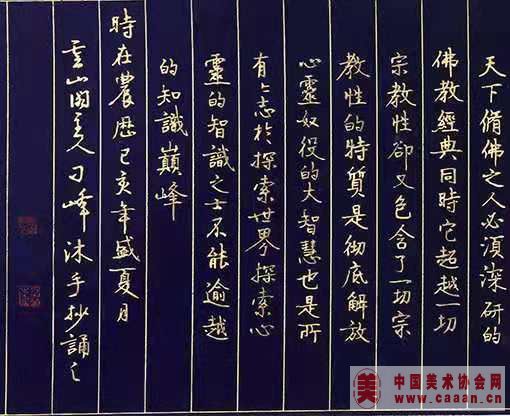 天下脩佛之人必須深研的
佛教經典同時它超越一切
宗教性卻又包含了一切宗
教性的特質是徹底解放
心靈奴役的大智慧也是所
有有志於探索世界探索心
靈的智識之士不能逾越
的知識巔峰
時在農歷己亥年盛夏月
雲山閣主人刁峰沐手抄誦之
美
中国美术协会网
www.caaan.cn